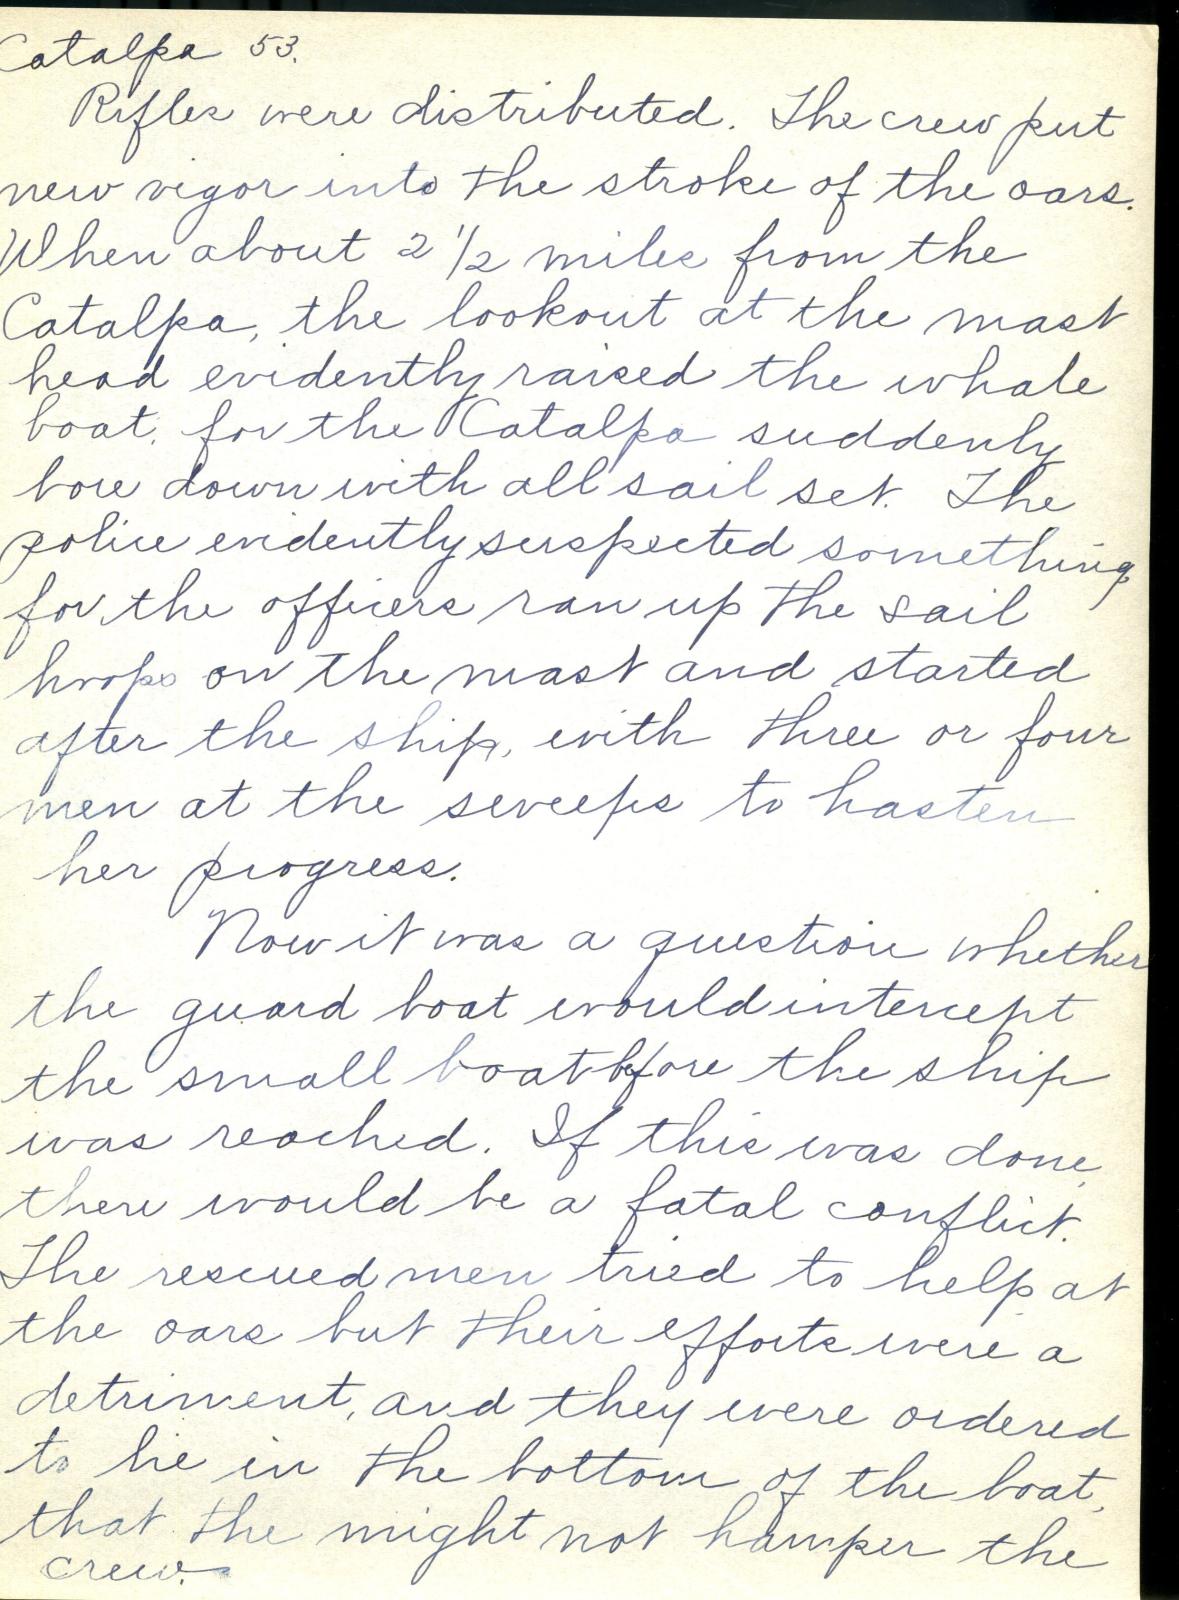 Catalpa 53.
Rifles were distributed. The crew put
new vigor into the stroke of the oars.
When about 2 1/2 miles from the
Catalpa, the lookout at the mast
head evidently raised the whale
boat, for the Catalpa suddenly
bore down with all sail set. The
police evidently suspected something
for the officers ran up the sail
hoops on the mast and started
after the ship, with three or four
men at the sweeps to hasten
her progress.
Now it was a question whether
the guard boat would intercept
the small boat before the ship
was reached. If this was done,
there would be a fatal conflict.
The rescued men tried to help at
the oars but their efforts were a
detriment, and they were ordered
to lie in the bottom of the boat,
that the might not hamper the
crew.